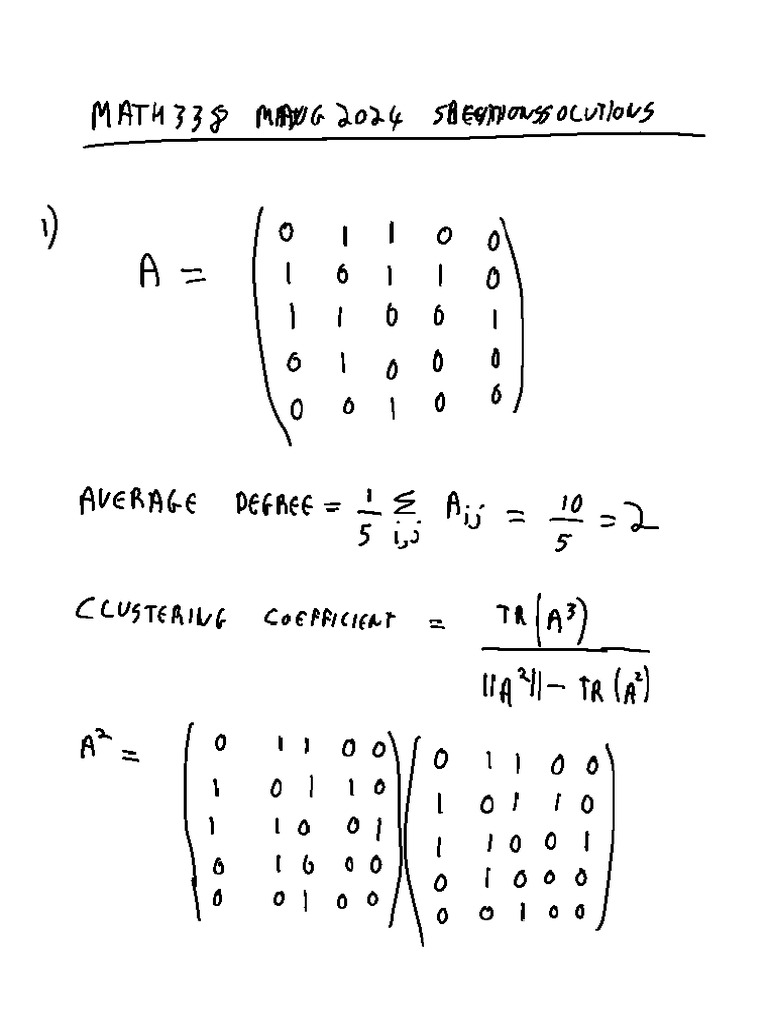 MATH338 2024
1)
A = ( 0 1 1 0 0
1 0 1 1 0
1 1 0 0 1
0 1 0 0 0
0 0 1 0 0 )
AVERAGE DEGREE = 1/5 Σ i,j A ij = 10/5 = 2
CLUSTERING COEFFICIENT = TR(A³) / ||A²|| - TR(A²)
A² = ( 0 1 1 0 0 ) ( 0 1 1 0 0 )
1 0 1 1 0 1 0 1 1 0
1 1 0 0 1 1 1 0 0 1
0 1 0 0 0 0 1 0 0 0
0 0 1 0 0 0 0 1 0 0